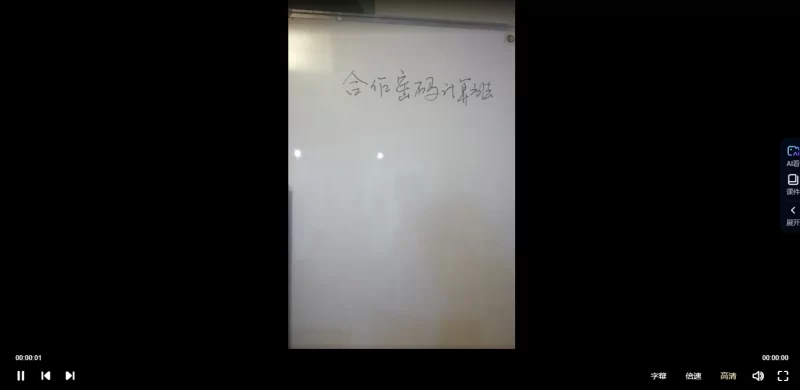 合作密码计算法
AI看
课件
展开
00:00:01
00:00:00
字幕
倍速
高清